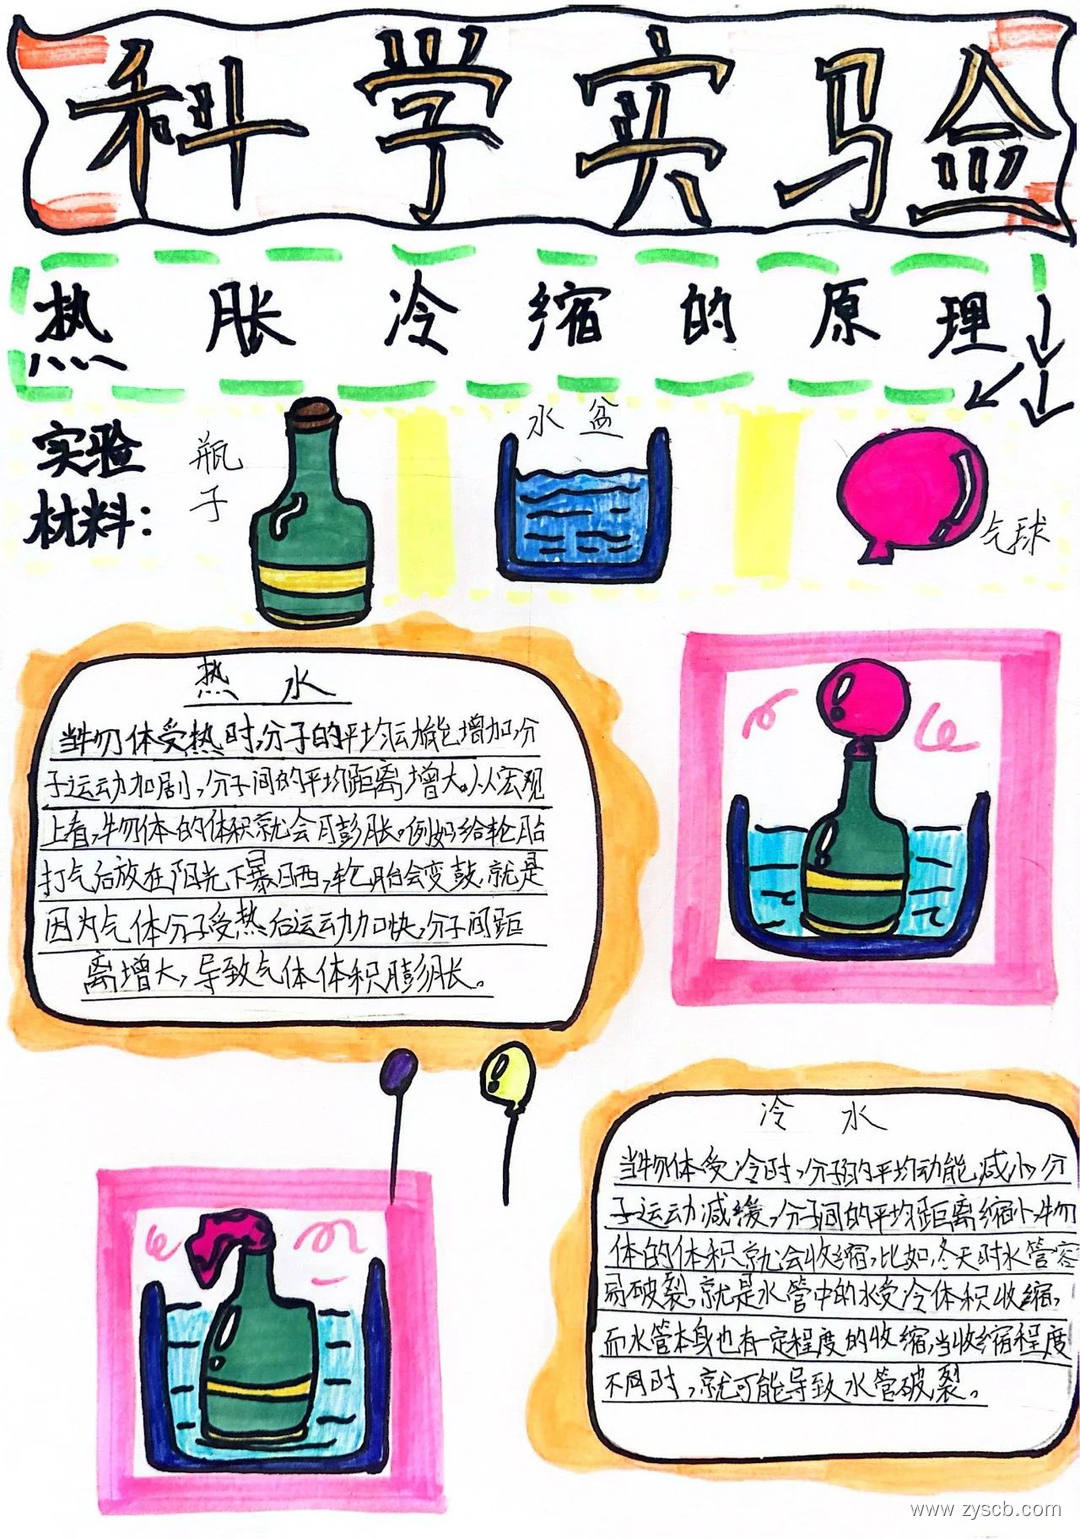 科学实验
热胀冷缩的原理
实验
材料：
瓶
子
水盆
气球
热水
当物体受热时，分子的平均动能增加，分
子运动加剧，分子间的平均距离增大。从宏观
上看，物体的体积就会膨胀。例如给轮胎
打气后放在阳光下暴晒，轮胎会变鼓，就是
因为气体分子受热后运动加快，分子间距
离增大，导致气体体积膨胀。
冷水
当物体受冷时，分子的平均动能减小，分
子运动减缓，分子间的平均距离缩小，物
体的体积就会收缩，比如，冬天时水管容
易破裂，就是水管中的水受冷体积收缩，
而水管本身也有一定程度的收缩，当收缩程度
不同时，就可能导致水管破裂。
www.zyscb.com